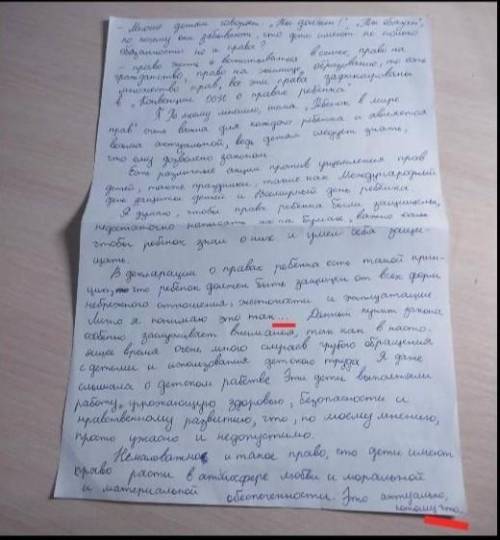 Много детям говорят „Ты должен!", „Ты обязан",
но почему они забывают, что дети имеют не только
обязанности но и права?
- право жить и воспитываться в семье, право на
гражданство, право на жилище, образование, то есть
множество прав, все эти права задекларированы
в „Конвенции ООН о правах ребёнка"
По моему мнению, тема „Ребёнок в мире
прав" очень важна для каждого ребёнка и является
весьма актуальной, ведь детям следует знать,
что ему дозволено законом.
Есть различные акции против ущемления прав
детей, также праздники, такие как Международный
день защиты детей и Всемирный день ребёнка.
Я думаю, чтобы права ребёнка были защищены,
недостаточно написать их на бумаге, важно
чтобы ребёнок знал о них и умел себя защи-
щать.
В декларации о правах ребёнка есть такой прин-
цип, что ребёнок должен быть защищён от всех форм
небрежного отношения, жестокости и эксплуатации
Лично я понимаю это так... Данный пункт закона
особенно заслуживает внимания, так как в насто-
ящее время очень много случаев грубого обращения
с детьми и использования детского труда. Я даже
слышала о детском рабстве. Эти дети выполняли
работу, угрожающую здоровью, безопасности и
нравственному развитию, что, по моему мнению,
просто ужасно и недопустимо.
Немаловажно и такое право, что дети имеют
право расти в атмосфере любви и моральной
и материальной обеспеченности. Это актуально,
потому что